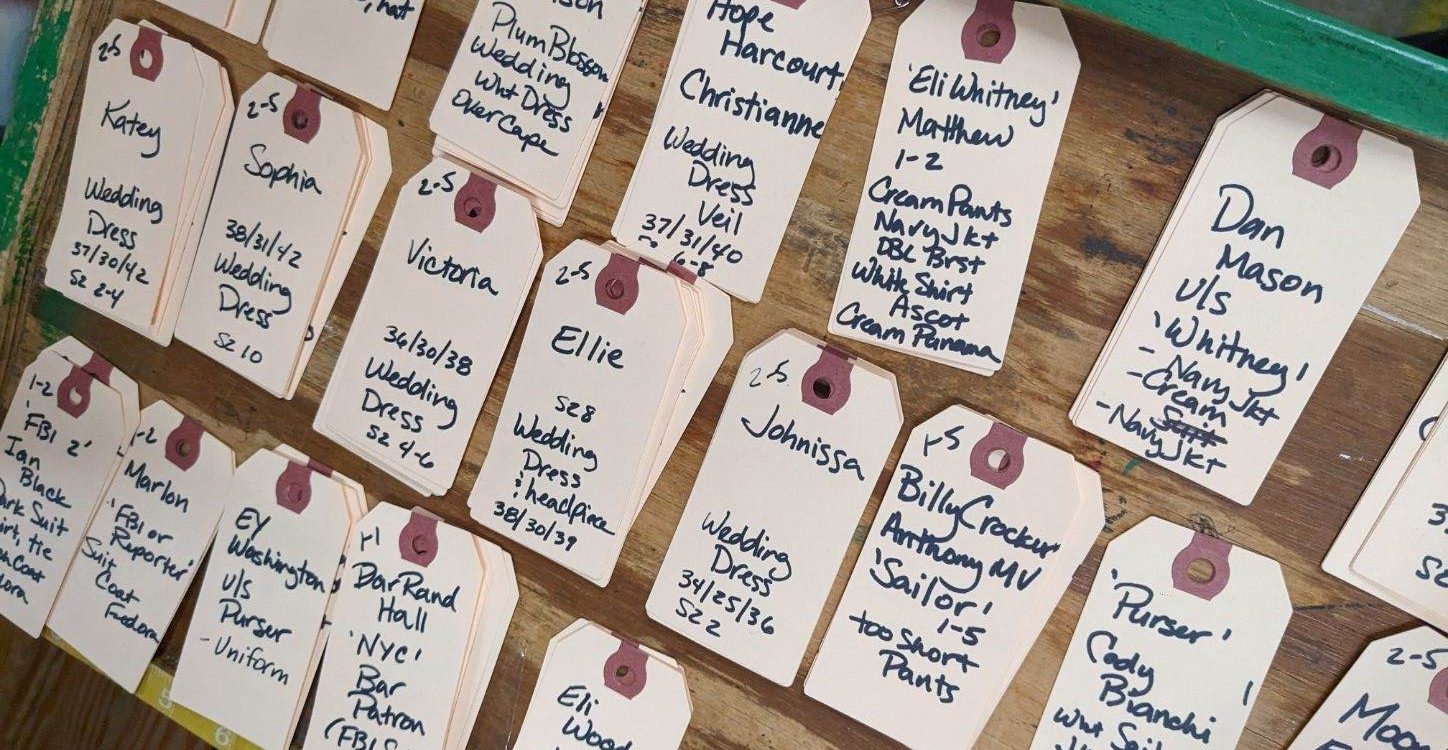 hat
Plum Blossom
Wedding
Wht Dress
Over Cape
Hope
Harcourt
Christianne
Wedding
Dress
Veil
37/31/40
6-8
'Eli Whitney'
Matthew
1-2
Cream Pants
Navy Jkt
DBL Brst
White Shirt
Ascot
Cream Panama
Dan
Mason
U/S
'Whitney'
- Navy Jkt
- Cream
- Navy Jkt
2-5
Katey
Wedding
Dress
37/30/42
SZ 2-4
2-5
Sophia
38/31/42
Wedding
Dress
SZ 10
2-5
Victoria
36/30/38
Wedding
Dress
SZ 4-6
2-5
Ellie
SZ 8
Wedding
Dress
& headpiece
38/30/39
2-5
Johnissa
Wedding
Dress
34/25/36
SZ 2
1-5
Billy Crocker
Anthony MV
'Sailor'
1-5
too short
Pants
1-2
'FBI 2'
Ian
Black
Dark Suit
-2
Marlon
'FBI or
Reporter'
Suit
Coat
Fedora
EY
Washington
U/S
Purser
- Uniform
1-1
BarRand
Hall
'NYC'
Bar
Patron
Eli
Wood
'Purser'
Cody
Bianchi
Wht
2-5
5
6